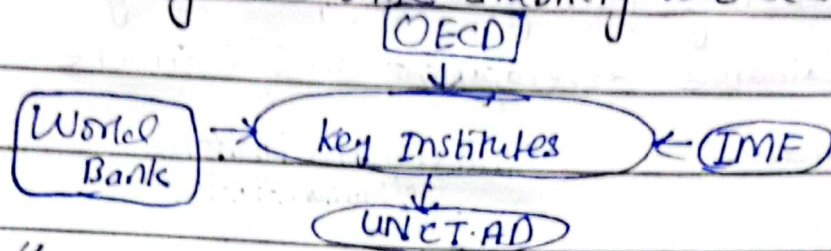 OECD
World
Bank
Key Institutes
IMF
UNCT.AD